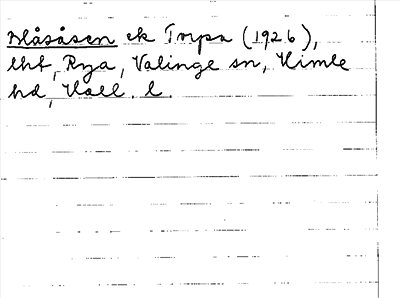 Blåsåsen ek Torpa (1926),
lht, Rya, Valinge sn, Himle
hd, Hall. l.